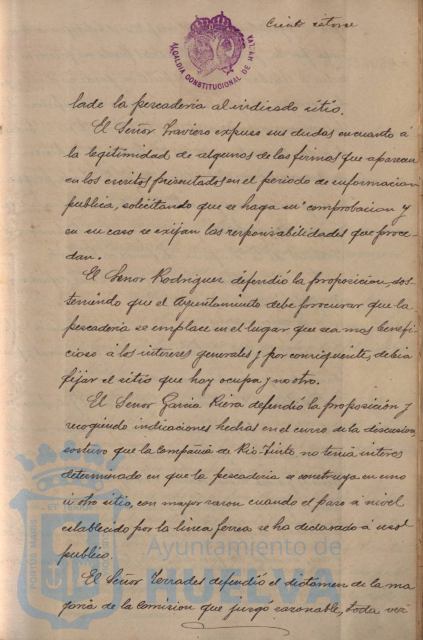 Ciento catorce
ALCALDIA CONSTITUCIONAL DE HUELVA
lade la pescaderia al indicado sitio.
El Señor Traviero expuso sus dudas en cuanto á
la legitimidad de algunas de las firmas que aparecen
en los escritos presentados en el periodo de informacion
publica, solicitando que se haga su comprobacion y
en su caso se exijan las responsabilidades que proce-
dan.
El Señor Rodriguez defendió la proposicion, sos-
teniendo que el Ayuntamiento debe procurar que la
pescaderia se emplace en el lugar que sea mas benefi-
cioso á los intereses generales y por consiguiente, debia
fijar el sitio que hoy ocupa y no otro.
El Señor Garcia Riera defendió la proposición y
recogiendo indicaciones hechas en el curso de la discusion,
sostuvo que la Compañia de Rio-Tinto, no tenia interes
determinado en que la pescaderia se construya en uno
ú otro sitio, con mayor razon cuando el paso á nivel
establecido por la linea ferrea se ha declarado á uso
publico.
El Señor Terrades defendió el dictamen de la ma-
yoria de la Comision que juzgó razonable, toda vez
PORTUS MARIS
Ayuntamiento de
HUELVA